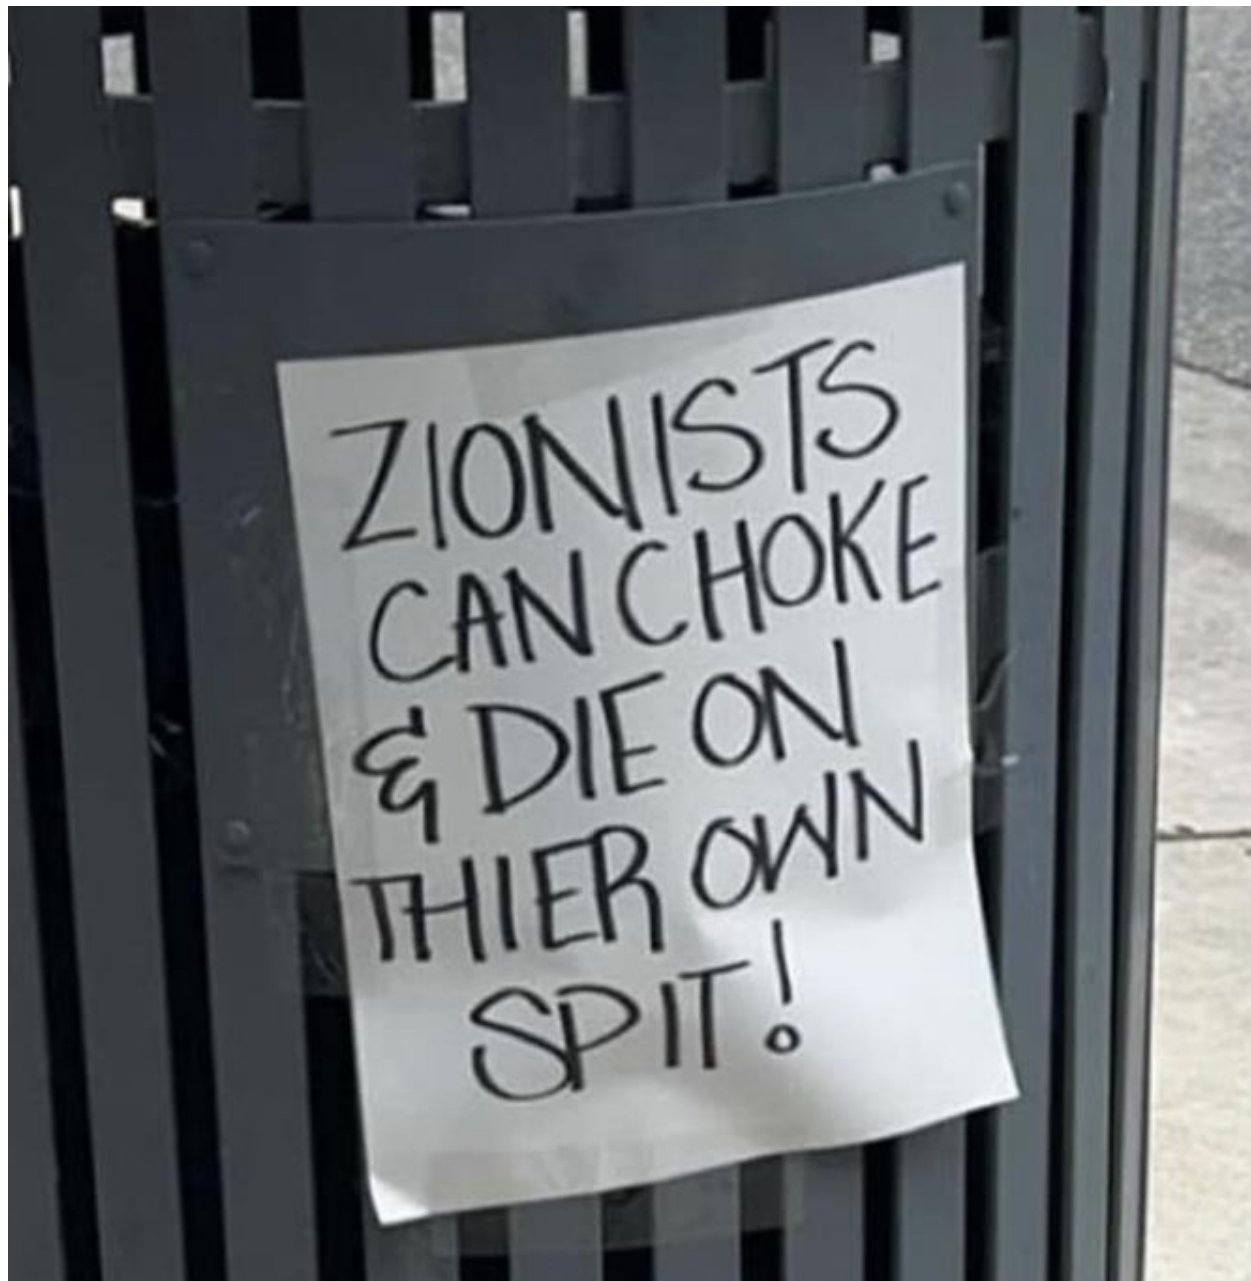 ZIONISTS
CAN CHOKE
& DIE ON
THIER OWN
SPIT!